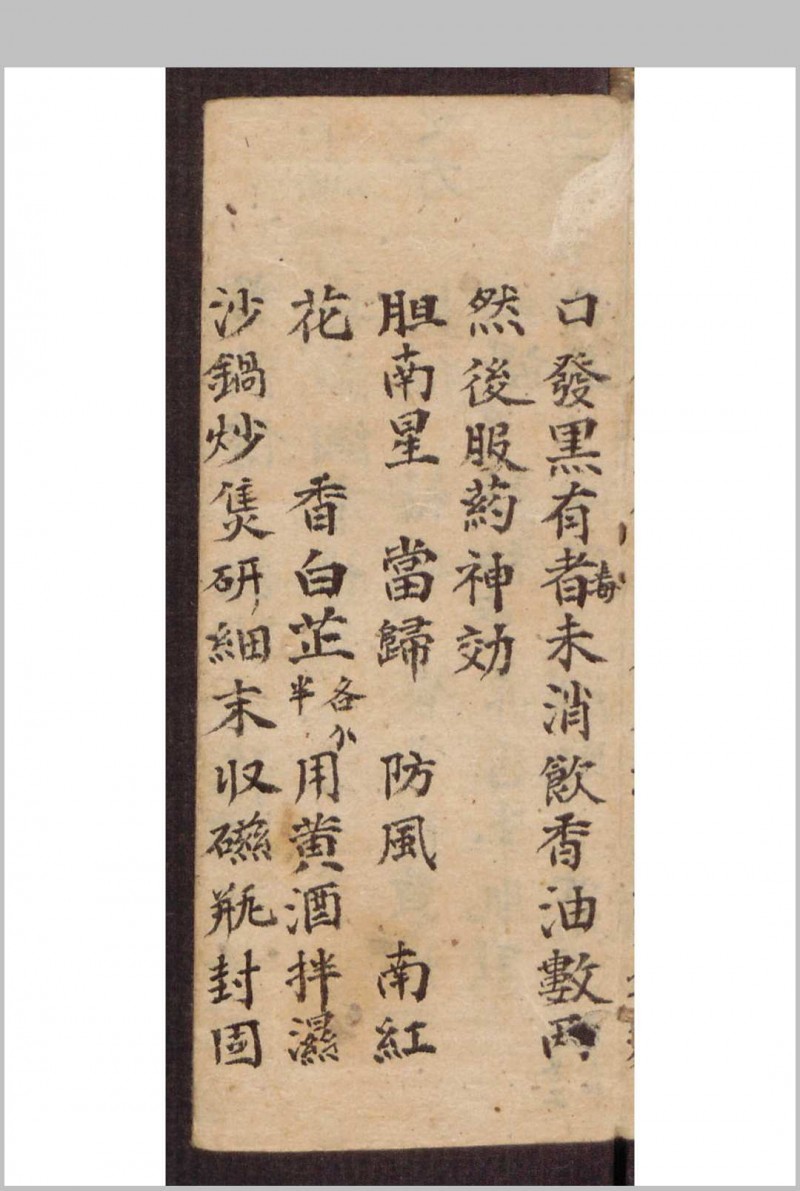 口發黒有者毒未消飲香油數両
然後服药神効
胆南星　當歸　防風　南紅
花　香白芷各半用黄酒拌濕
沙鍋炒隻研細末収磁瓶封固